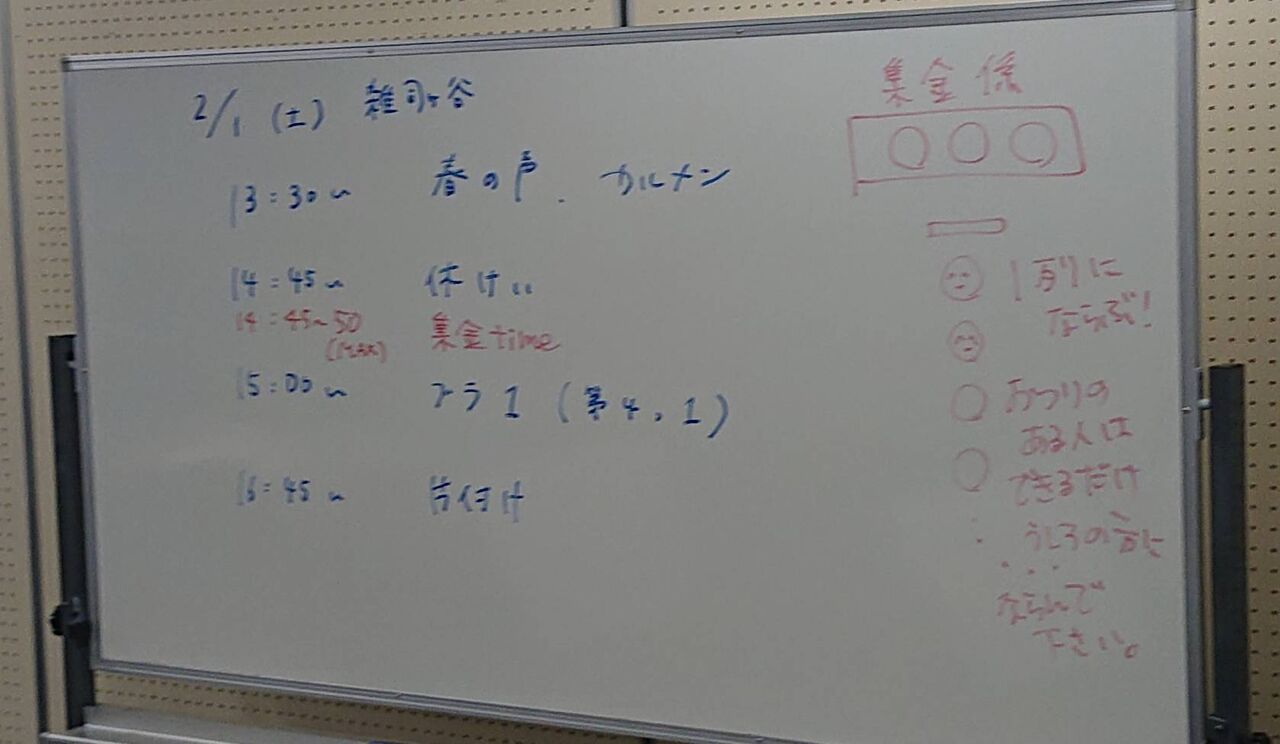 2/1 (土) 雑司ヶ谷
13:30〜 春の声. カルメン
14:45〜 休けい
14:45〜50 集金time
(MAX)
15:00〜 ブラ1 (第4,1)
16:45〜 片付け
集金係
1列に
ならぶ!
おつりの
ある人は
できるだけ
うしろの方に
ならんで
下さい。